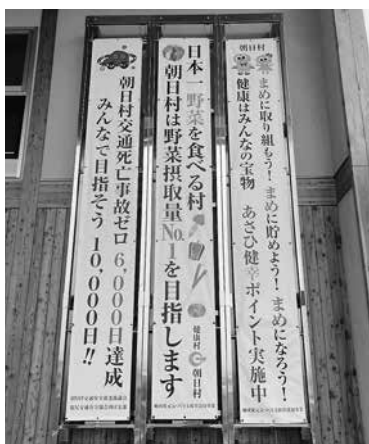 朝日村
まめに取り組もう！まめに貯めよう！まめになろう！
健康はみんなの宝物 あさひ健幸ポイント実施中
日本一野菜を食べる村
朝日村は野菜摂取量No.1を目指します
健康村 朝日村
朝日村交通死亡事故ゼロ 6,000日達成
みんなで目指そう 10,000日!!